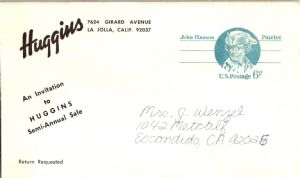 Huggins
7624 GIRARD AVENUE
LA JOLLA, CALIF. 92037
John Hanson Patriot
U.S. Postage 6¢
An Invitation
to
HUGGINS
Semi-Annual Sale
Mrs. J. Wenzel
1042 Metcalf
Escondido, CA 92025
Return Requested